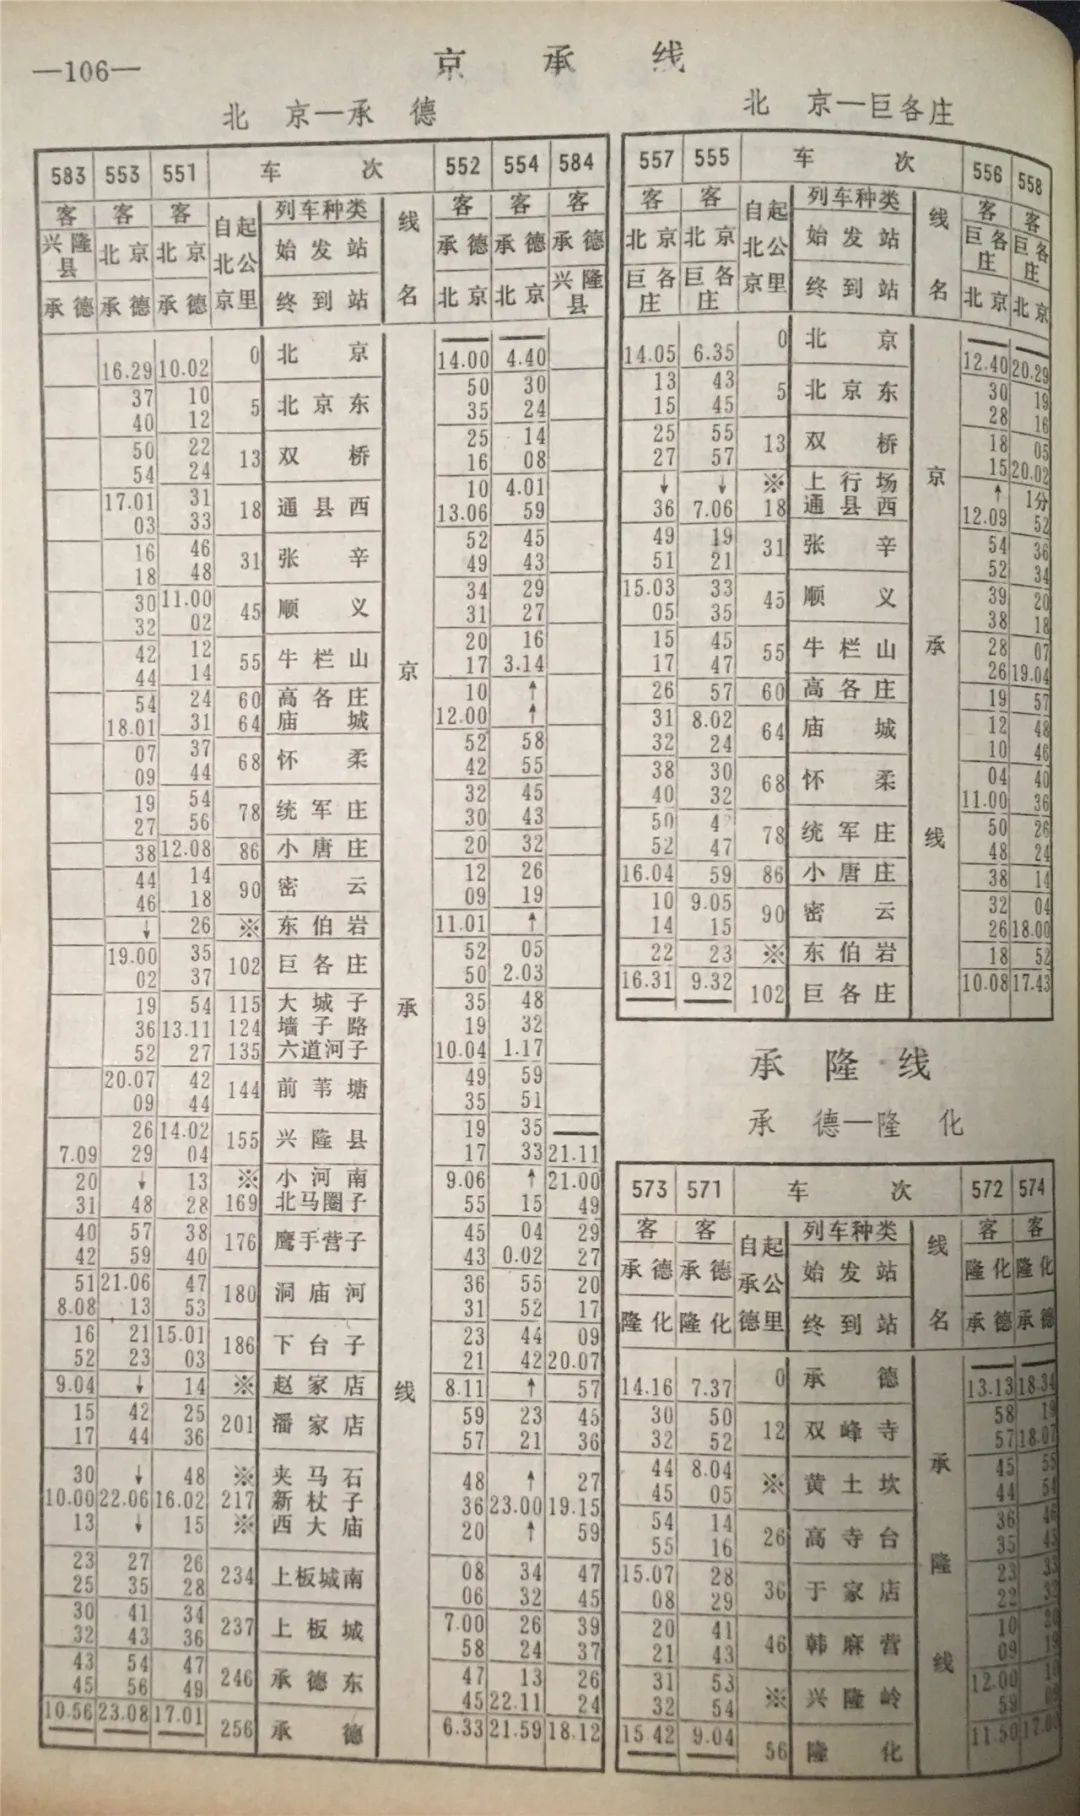 —106—
京承线
北京—承德
583 553 551 车次 552 554 584
客 客 客 自北京起公里 列车种类 线名 客 客 客
兴隆县 北京 北京 始发站 承德 承德 承德
承德 承德 承德 终到站 北京 北京 兴隆县
京承线
16.29 10.02 0 北京 14.00 4.40
37 10 5 北京东 50 30
40 12 35 24
50 22 13 双桥 25 14
54 24 16 08
17.01 31 18 通县西 10 4.01
03 33 13.06 59
16 46 31 张辛 52 45
18 48 49 43
30 11.00 45 顺义 34 29
32 02 31 27
42 12 55 牛栏山 20 16
44 14 17 3.14
54 24 60 高各庄 10 ↑
18.01 31 64 庙城 12.00 ↑
07 37 68 怀柔 52 58
09 44 42 55
19 54 78 统军庄 32 45
27 56 30 43
38 12.08 86 小唐庄 20 32
44 14 90 密云 12 26
46 18 09 19
↓ 26 ※ 东伯岩 11.01 ↑
19.00 35 102 巨各庄 52 05
02 37 50 2.03
19 54 115 大城子 35 48
36 13.11 124 墙子路 19 32
52 27 135 六道河子 10.04 1.17
20.07 42 144 前苇塘 49 59
09 44 35 51
26 14.02 155 兴隆县 19 35
7.09 29 04 17 33 21.11
20 ↓ 13 ※ 小河南 9.06 ↑ 21.00
31 48 28 169 北马圈子 55 15 49
40 57 38 176 鹰手营子 45 04 29
42 59 40 43 0.02 27
51 21.06 47 180 洞庙河 36 55 20
8.08 13 53 31 52 17
16 21 15.01 186 下台子 23 44 09
52 23 03 21 42 20.07
9.04 ↓ 14 ※ 赵家店 8.11 ↑ 57
15 42 25 201 潘家店 59 23 45
17 44 36 57 21 36
30 ↓ 48 ※ 夹马石 48 ↑ 27
10.00 22.06 16.02 217 新杖子 36 23.00 19.15
13 ↓ 15 ※ 西大庙 20 ↑ 59
23 27 26 234 上板城南 08 34 47
25 35 28 06 32 45
30 41 34 237 上板城 7.00 26 39
32 43 36 58 24 37
43 54 47 246 承德东 47 13 26
45 56 49 45 22.11 24
10.56 23.08 17.01 256 承德 6.33 21.59 18.12
北京—巨各庄
557 555 车次 556 558
客 客 自北京起公里 列车种类 线名 客 客
北京 北京 始发站 巨各庄 巨各庄
巨各庄 巨各庄 终到站 北京 北京
京承线
14.05 6.35 0 北京 12.40 20.29
13 43 5 北京东 30 19
15 45 28 16
25 55 13 双桥 18 05
27 57 15 20.02
↓ ↓ ※ 上行场 ↑ 1分
36 7.06 18 通县西 12.09 52
49 19 31 张辛 54 36
51 21 52 34
15.03 33 45 顺义 39 20
05 35 38 18
15 45 55 牛栏山 28 07
17 47 26 19.04
26 57 60 高各庄 19 57
31 8.02 64 庙城 12 48
32 24 10 46
38 30 68 怀柔 04 40
40 32 11.00 36
50 4 78 统军庄 50 26
52 47 48 24
16.04 59 86 小唐庄 38 14
10 9.05 90 密云 32 04
14 15 26 18.00
22 23 ※ 东伯岩 18 52
16.31 9.32 102 巨各庄 10.08 17.43
承隆线
承德—隆化
573 571 车次 572 574
客 客 自承德起公里 列车种类 线名 客 客
承德 承德 始发站 隆化 隆化
隆化 隆化 终到站 承德 承德
承隆线
14.16 7.37 0 承德 13.13 18.34
30 50 12 双峰寺 58 19
32 52 57 18.07
44 8.04 ※ 黄土坎 45 55
45 05 44 54
54 14 26 高寺台 36 46
55 16 35 43
15.07 28 36 于家店 23 33
08 29 22 32
20 41 46 韩麻营 10 20
21 43 09 19
31 53 ※ 兴隆岭 12.00 10
32 54 59 09
15.42 9.04 56 隆化 11.50 17.00